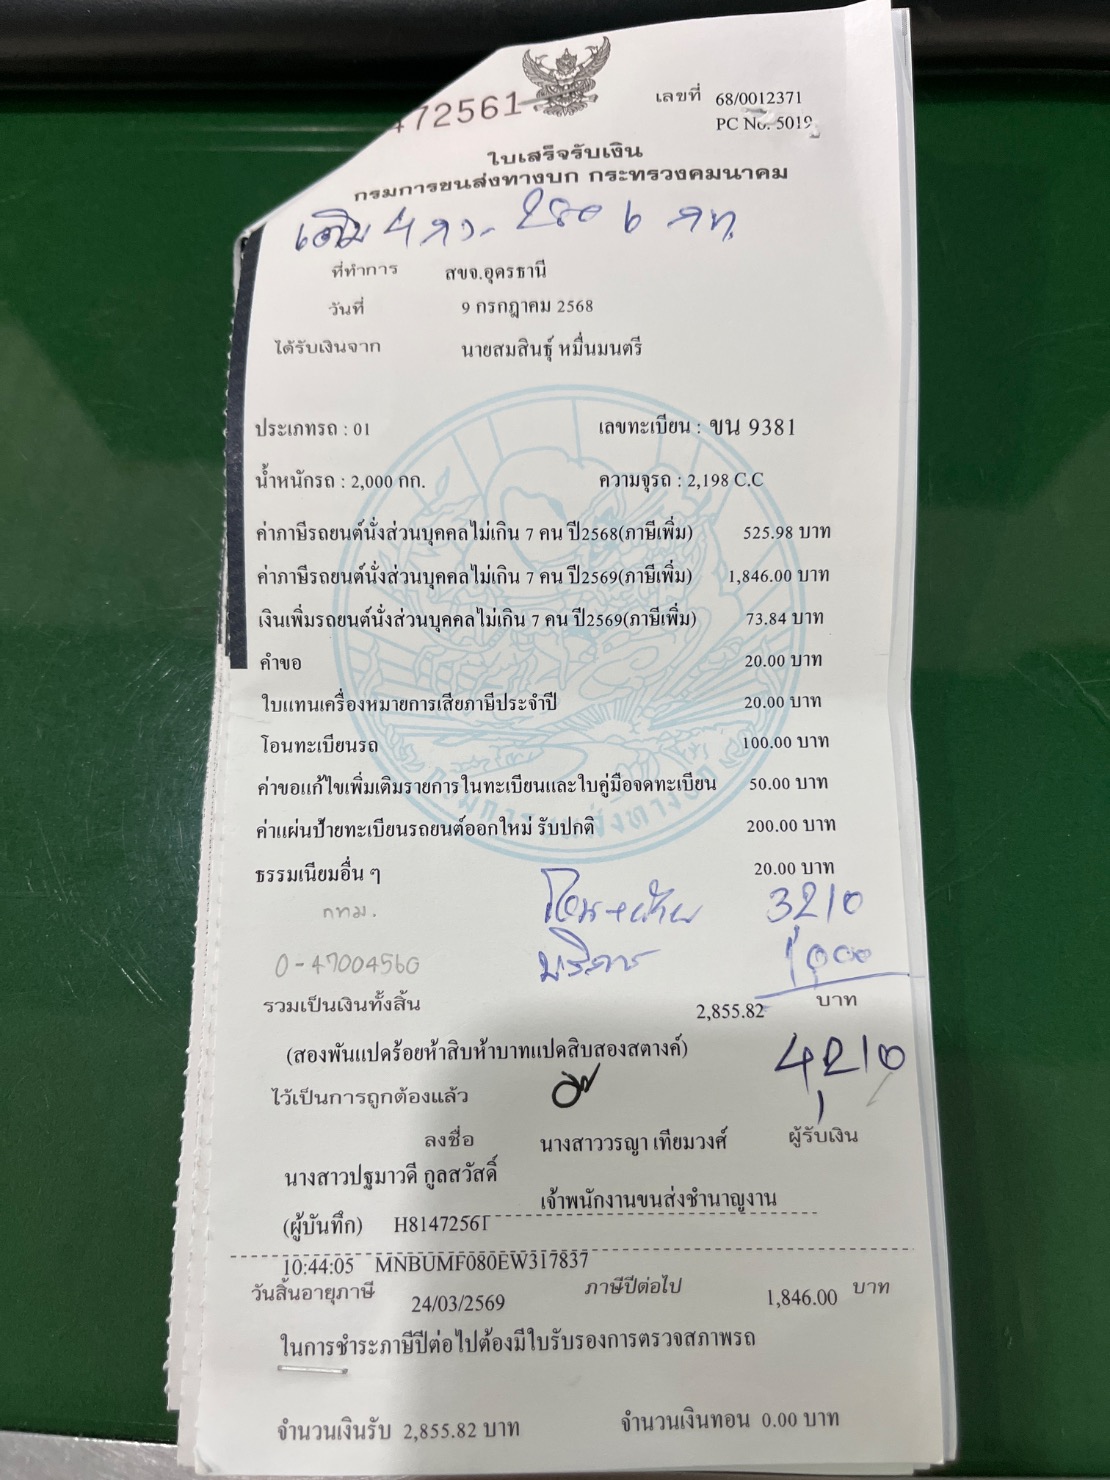 472561
เลขที่ 68/0012371
PC No. 5019
ใบเสร็จรับเงิน
กรมการขนส่งทางบก กระทรวงคมนาคม
เดิม 4
ที่ทำการ สขจ.อุดรธานี
วันที่ 9 กรกฎาคม 2568
ได้รับเงินจาก นายสมสินธุ์ หมื่นมนตรี
ประเภทรถ : 01 เลขทะเบียน : ขน 9381
น้ำหนักรถ : 2,000 กก. ความจุรถ : 2,198 C.C
ค่าภาษีรถยนต์นั่งส่วนบุคคลไม่เกิน 7 คน ปี2568(ภาษีเพิ่ม) 525.98 บาท
ค่าภาษีรถยนต์นั่งส่วนบุคคลไม่เกิน 7 คน ปี2569(ภาษีเพิ่ม) 1,846.00 บาท
เงินเพิ่มรถยนต์นั่งส่วนบุคคลไม่เกิน 7 คน ปี2569(ภาษีเพิ่ม) 73.84 บาท
คำขอ 20.00 บาท
ใบแทนเครื่องหมายการเสียภาษีประจำปี 20.00 บาท
โอนทะเบียนรถ 100.00 บาท
ค่าขอแก้ไขเพิ่มเติมรายการในทะเบียนและใบคู่มือจดทะเบียน 50.00 บาท
ค่าแผ่นป้ายทะเบียนรถยนต์ออกใหม่ รับปกติ 200.00 บาท
ธรรมเนียมอื่น ๆ 20.00 บาท
กทม. โอน+ย้าย 3210
0-47004560 บริการ 1,000
รวมเป็นเงินทั้งสิ้น 2,855.82 บาท
(สองพันแปดร้อยห้าสิบห้าบาทแปดสิบสองสตางค์) 4,210
ไว้เป็นการถูกต้องแล้ว
ลงชื่อ นางสาววรญา เทียมวงศ์ ผู้รับเงิน
นางสาวปฐมาวดี กูลสวัสดิ์ เจ้าพนักงานขนส่งชำนาญงาน
(ผู้บันทึก) H81472561
10:44:05 MNBUMF080EW317837
วันสิ้นอายุภาษี 24/03/2569 ภาษีปีต่อไป 1,846.00 บาท
ในการชำระภาษีปีต่อไปต้องมีใบรับรองการตรวจสภาพรถ
จำนวนเงินรับ 2,855.82 บาท จำนวนเงินทอน 0.00 บาท